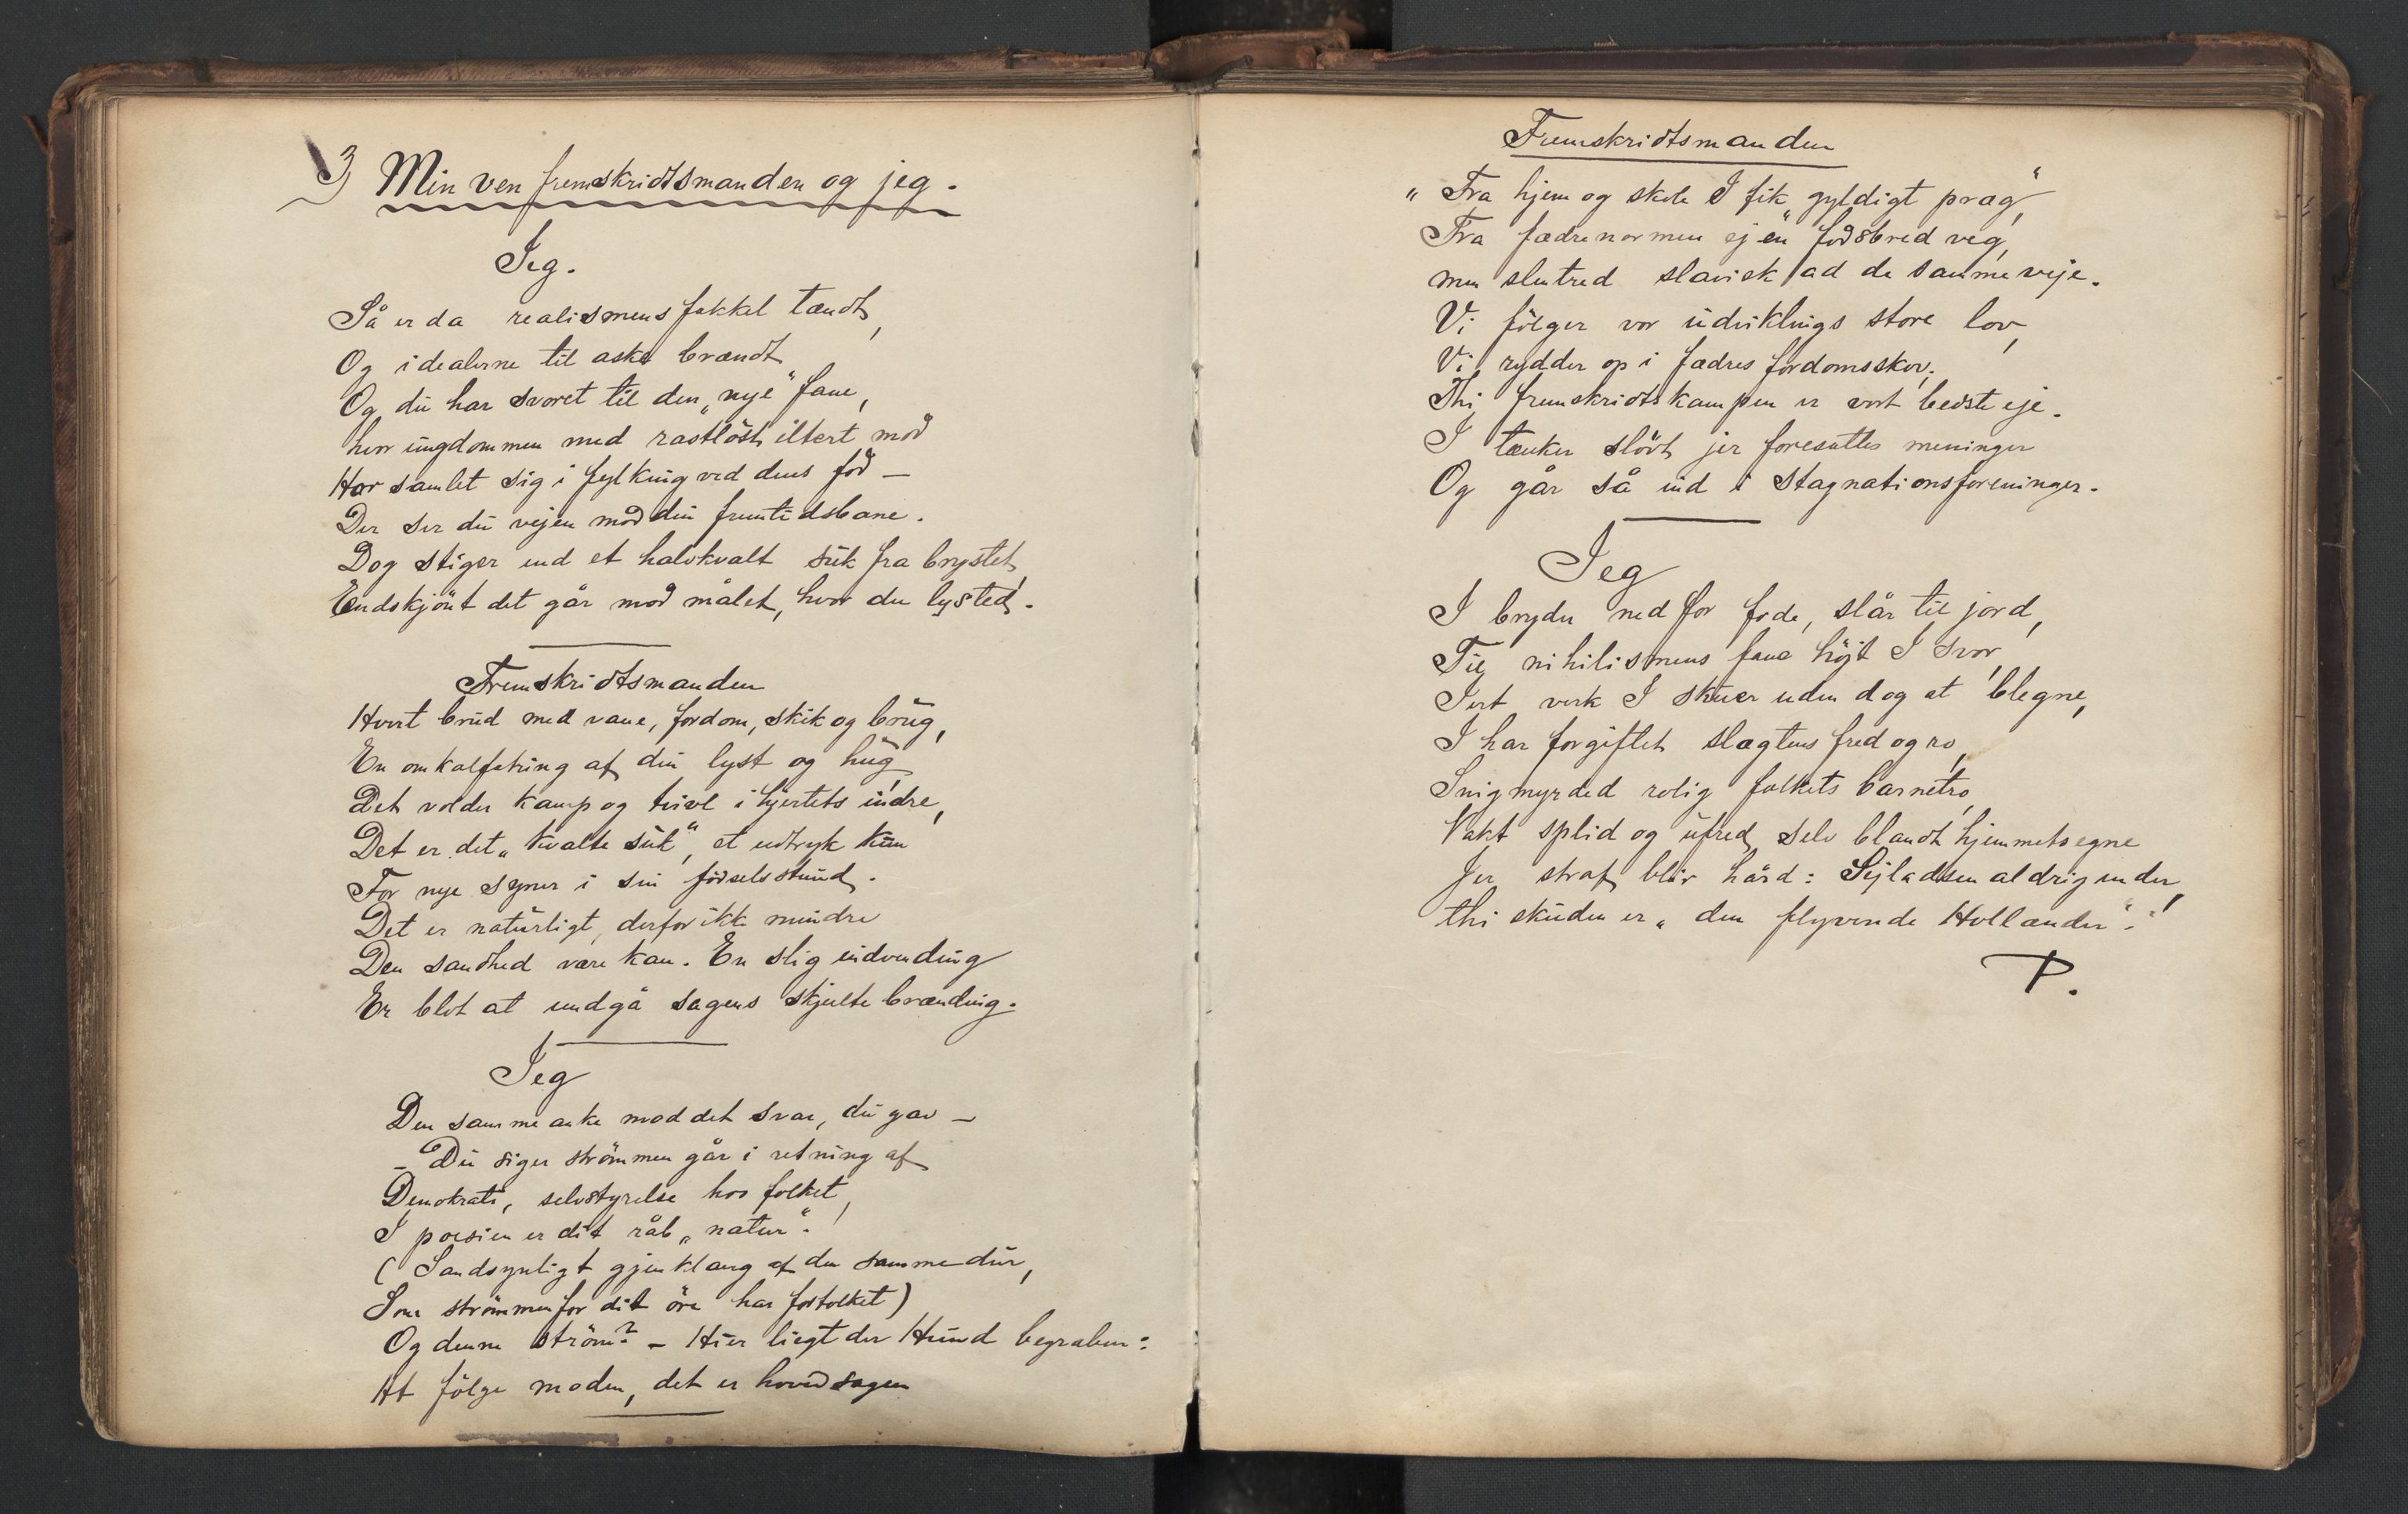 3) Min ven fremskridtsmanden og jeg.
Jeg.
Så er da realismens fakkel tændt,
Og idealerne til aske brændt
Og du har svoret til den „nye“ fane,
hvor ungdommen med rastløst iltert mod
Har samlet sig i fylking ved dens fod —
Der ser du vejen mod din fremtidsbane.
Dog stiger end et halvkvalt suk fra brystet,
Endskjönt det går mod målet, hvor du lysted.
Fremskridtsmanden
Hvert brud med vane, fordom, skik og brug,
En omkalfatring af din lyst og hug,
Det volder kamp og tvivl i hjertets indre,
Det er det „kvalte suk“, et udtryk kun
For nye syner i sin födselsstund.
Det er naturligt, derfor ikke mindre
Den sandhed være kan. En slig indvending
Er blot at undgå sagens skjulte brænding.
Jeg
Den samme anke mod det svar, du gav —
— Du siger strömmen går i retning af
Demokrati, selvstyrelse hos folket,
I poesien er dit råb „natur“.
(Sandsynligt gjenklang af den samme dur,
Som strömmen for dit öre har fortolket)
Og denne ström? — Hier liegt der Hund begraben:
At fölge moden, det er hovedsagen
Fremskridtsmanden
„Fra hjem og skole I fik „gyldigt præg“,
Fra fædrenormen ej en fodsbred veg,
men slentred slavisk ad de samme veje.
Vi fölger vor udviklings store lov,
Vi rydder op i fædres fordomsskov.
Thi fremskridtskampen er vort bedste eje.
I tænker slövt jer foresattes meninger
Og går så ind i Stagnationsforeninger.
Jeg
I bryder ned for fode, slår til jord,
Til nihilismens fane höjt I svor,
Jert verk I skuer uden dog at blegne,
I har forgiftet slægtens fred og ro,
Snigmyrded rolig folkets barnetro,
Vakt splid og ufred selv blandt hjemmets egne
Jer straf blir hård: Sejladsen aldrig ender,
thi skuden er „den flyvende Hollænder“.“
P.